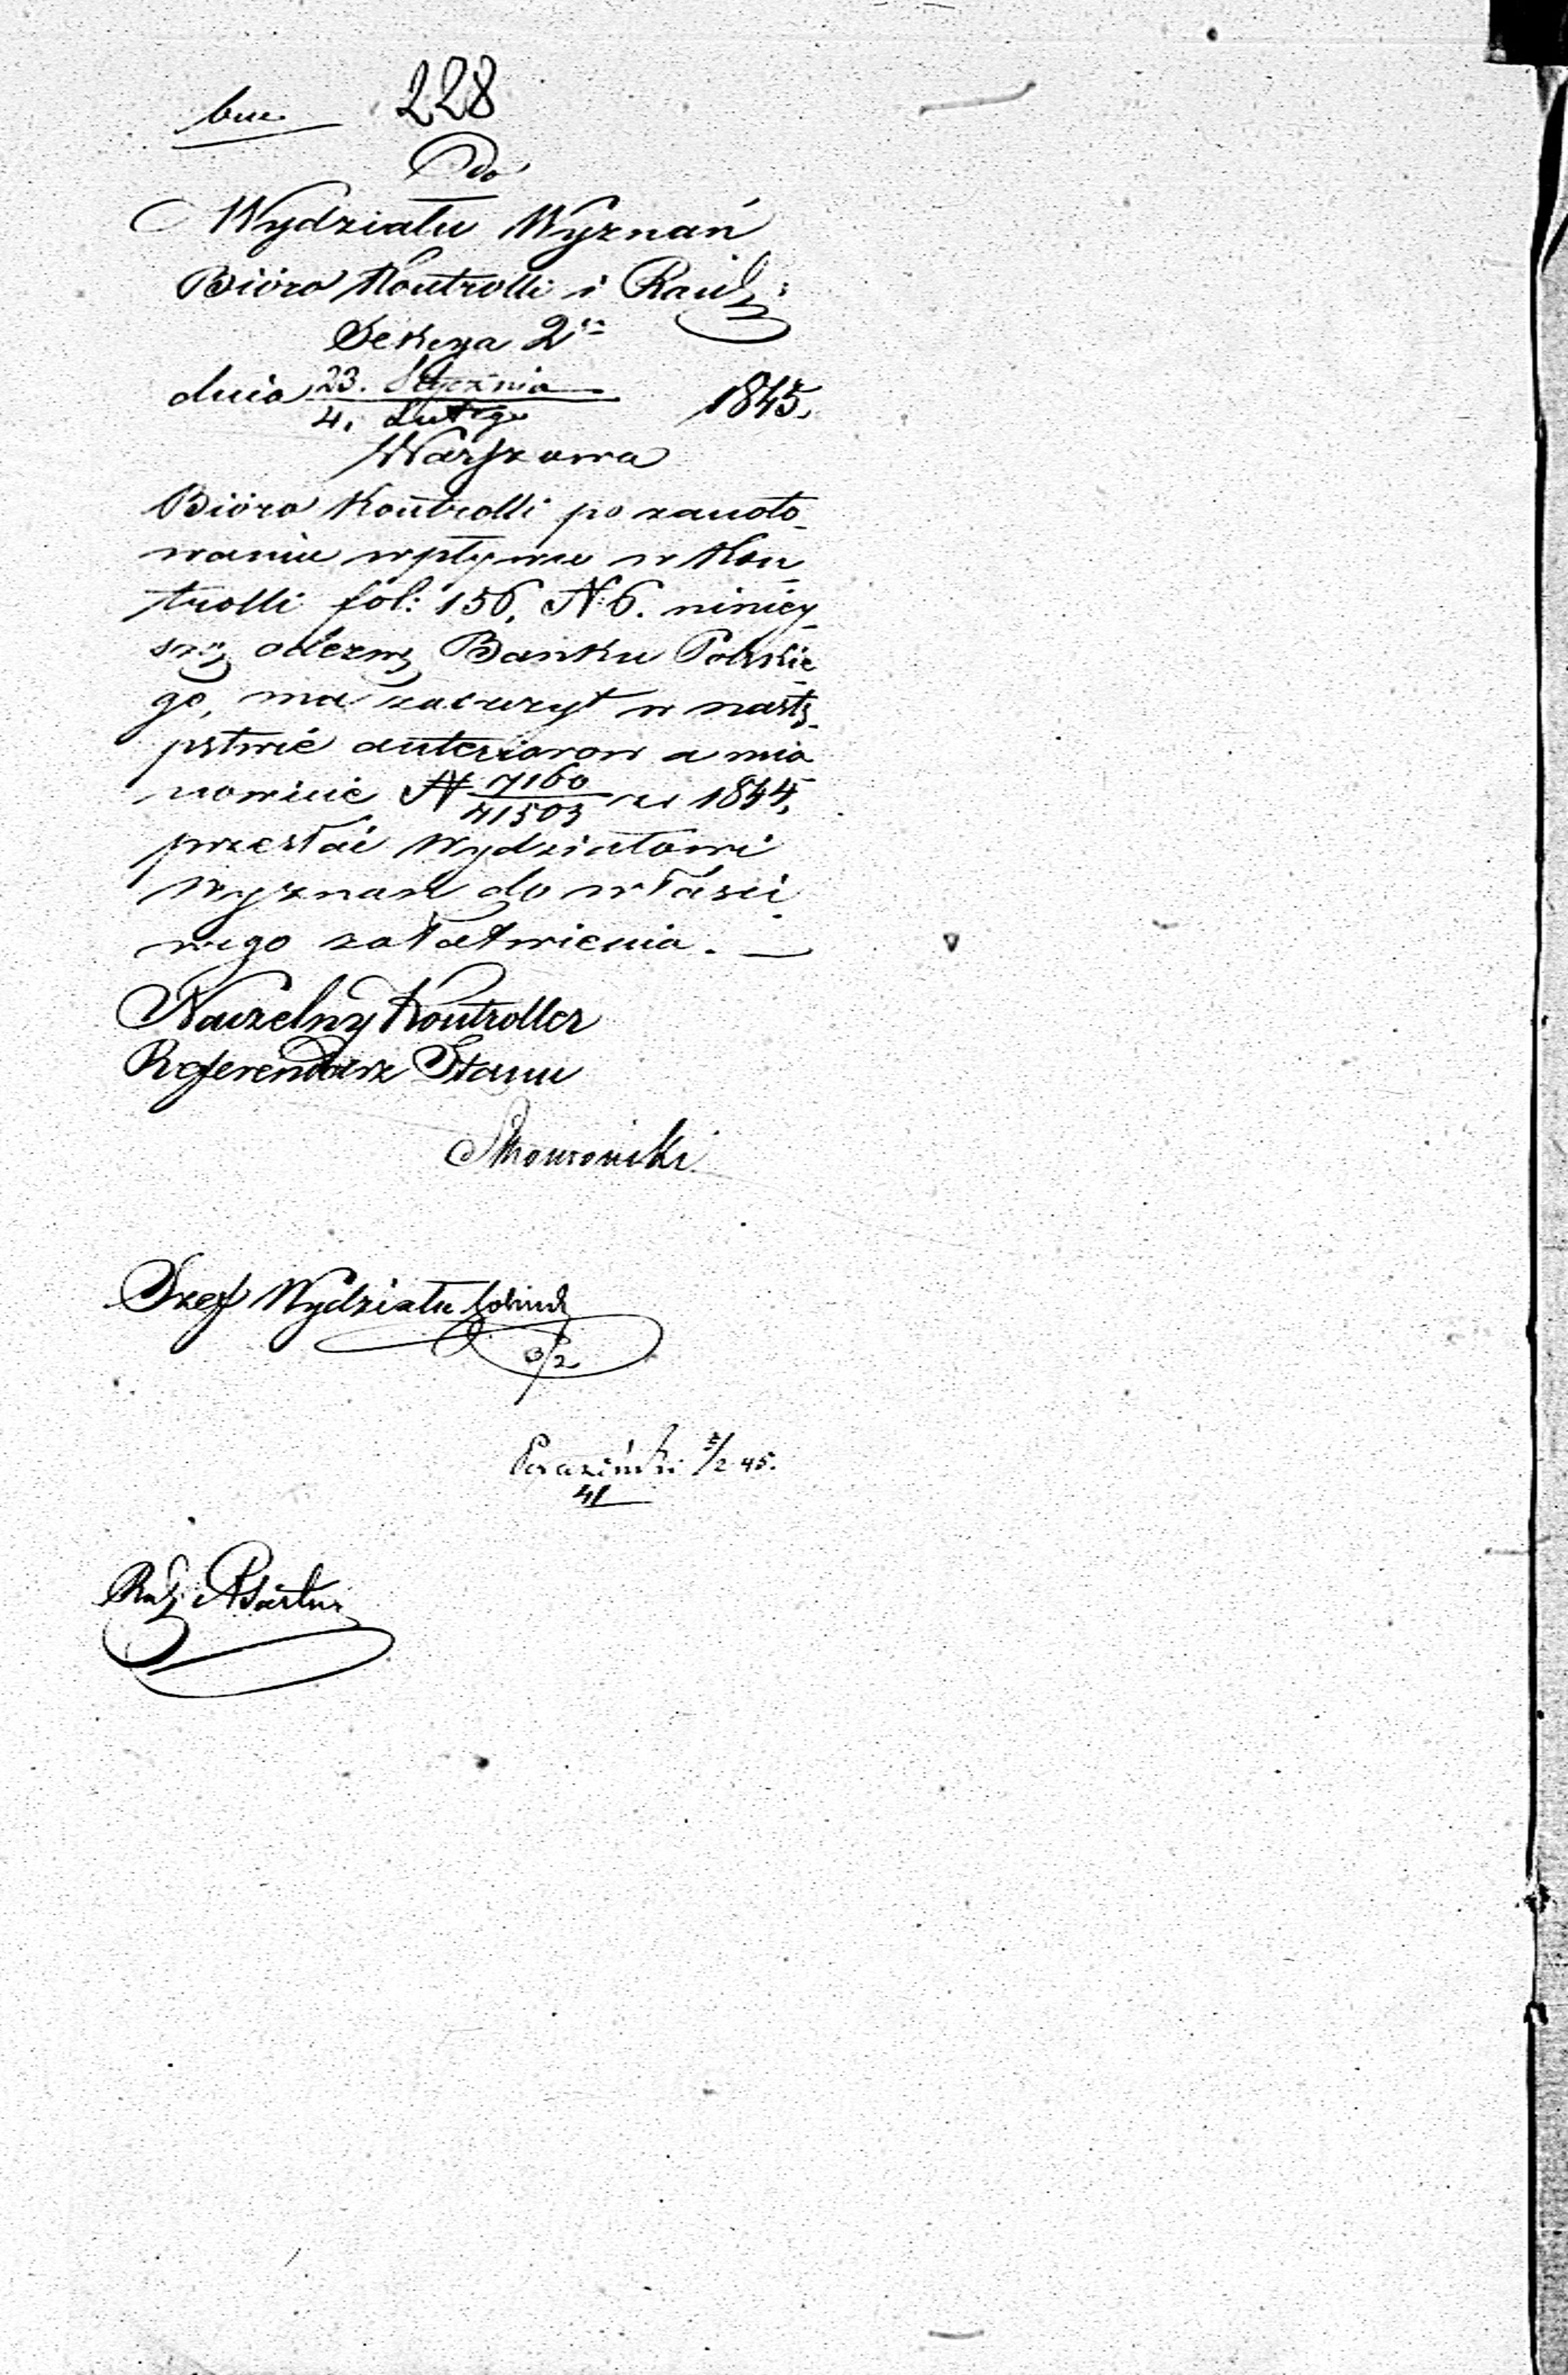 228
Do
Wydziału Wyznań
Bióro Kontrolli i Rach:
Sekcya 2
dnia 23. Stycznia / 4. Lutego 1845.
Warszawa
Bióro Kontrolli po zanoto-
waniu wpływu w Kon-
trolli fol: 156. N. 6. niniey-
szej odezwy Banku Polskie-
go, ma zaszczyt w nastę-
pstwie anteriorow a mia-
nowicie N 7160/41503 z 1844,
przesłać Wydziałowi
Wyznań do właści-
wego załatwienia. —
Naczelny Kontroller
Referendarz Stanu
Szef Wydziału
5/2 45.
41